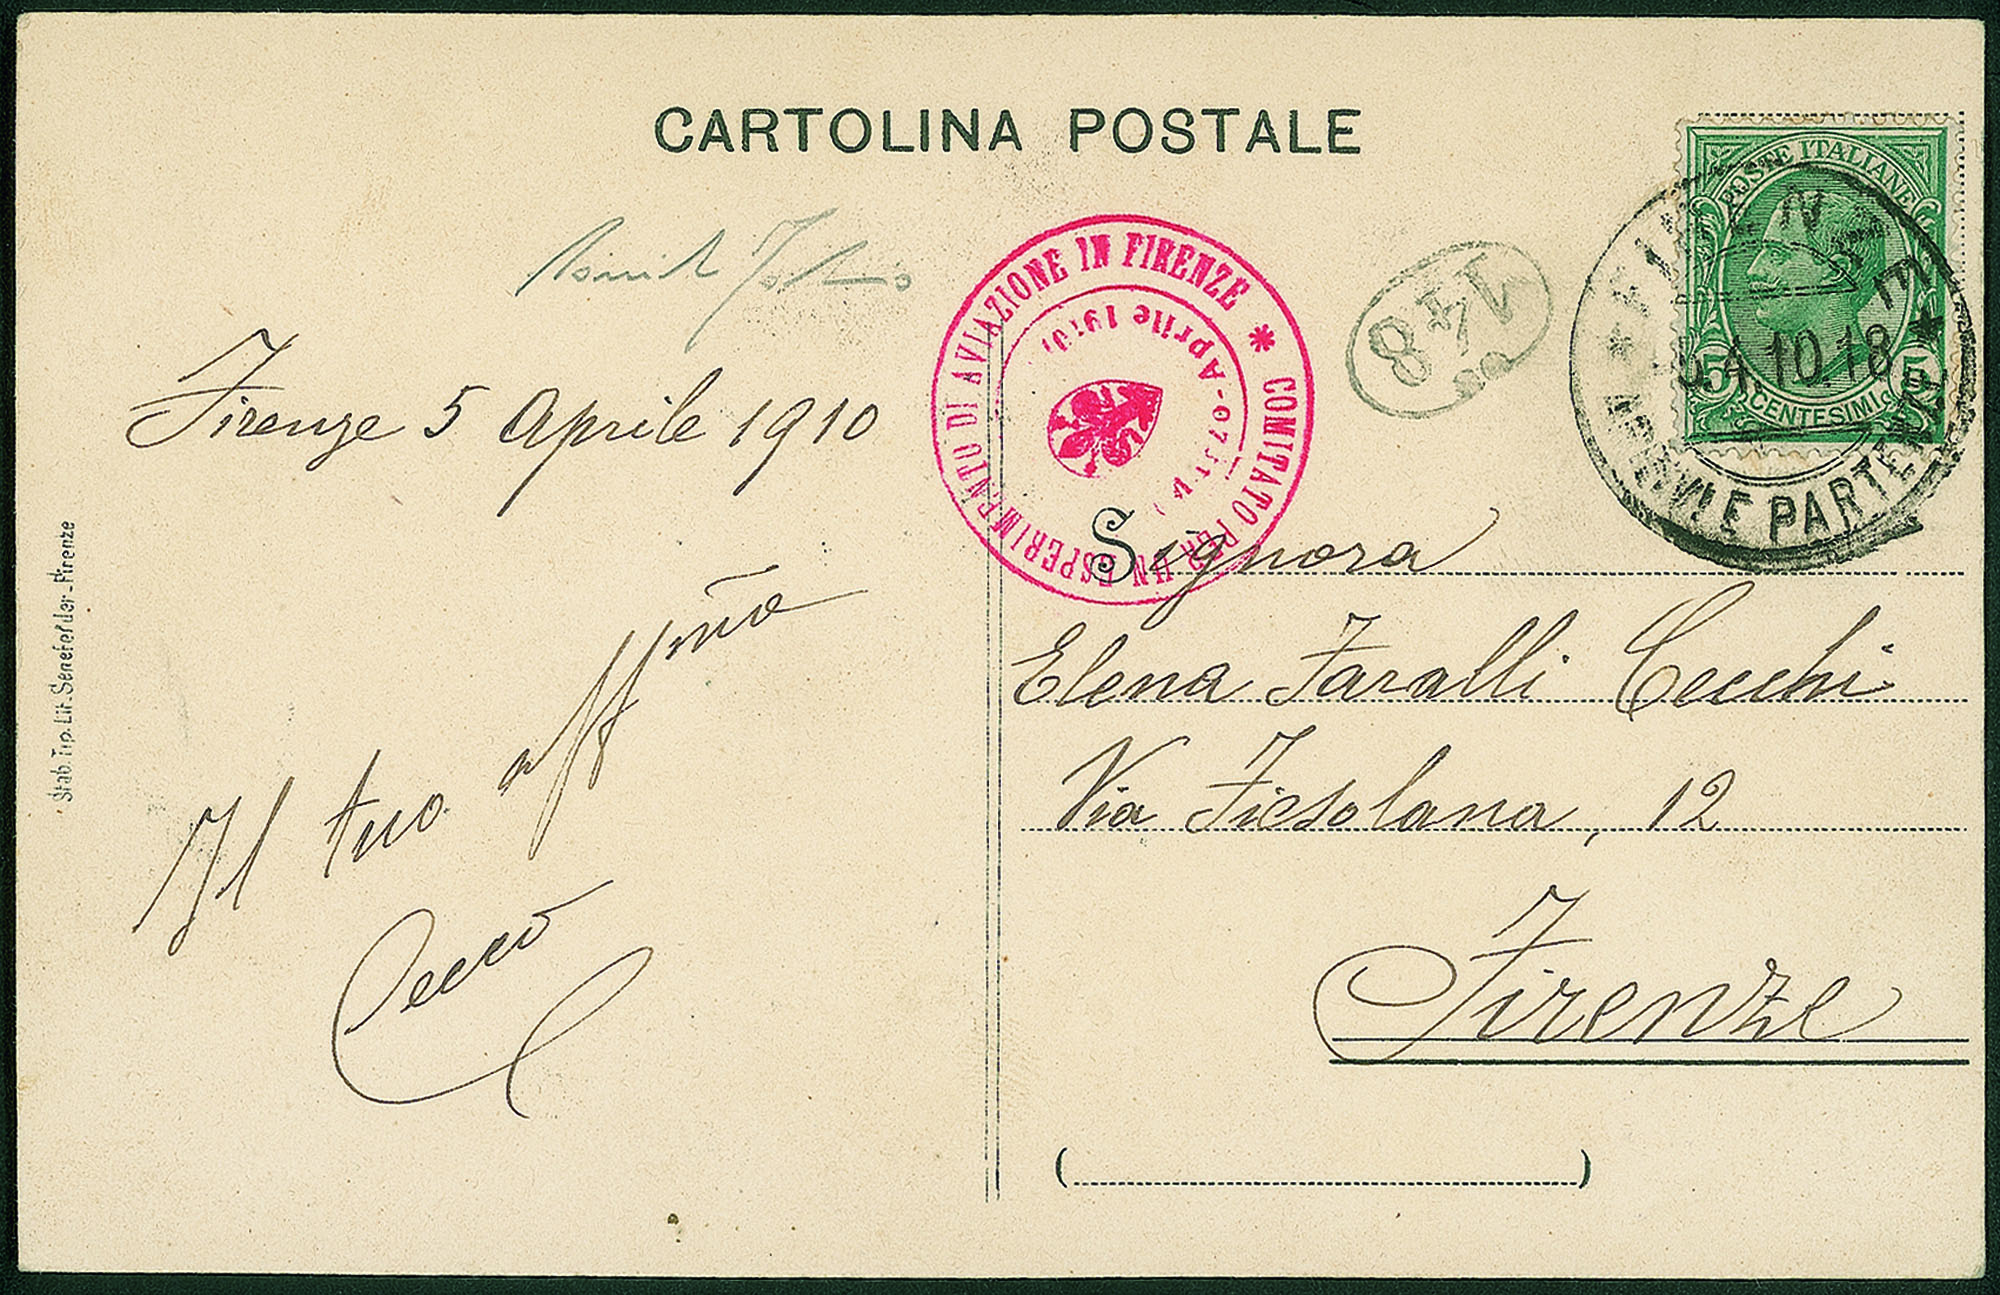 CARTOLINA POSTALE
POSTE ITALIANE
5 CENTESIMI 5
FIRENZE
4.10.18
FERROVIE PARTENZA
148
COMITATO PER UN ESPERIMENTO DI AVIAZIONE IN FIRENZE *
Aprile 1910
Firenze 5 Aprile 1910
Il tuo affmo
Cecco
Signora
Elena Faralli Cecchi
Via Fiesolana, 12
Firenze
Stab. Tip. Lit. Senefelder - Firenze